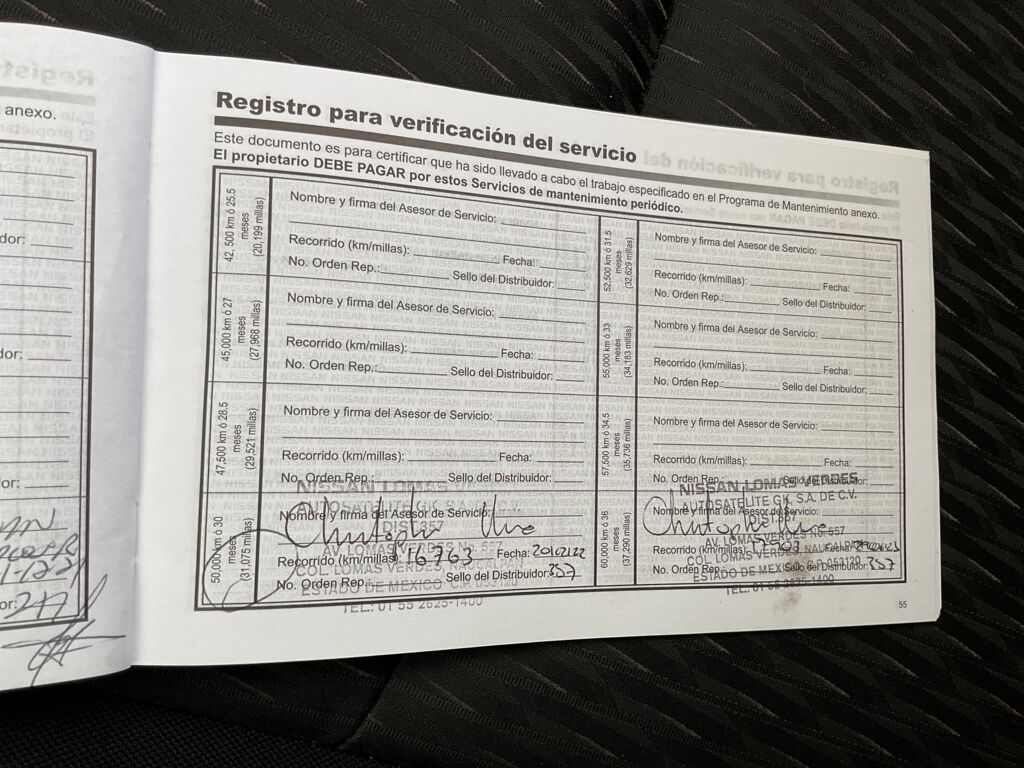 anexo.
Registro para verificación del servicio
Este documento es para certificar que ha sido llevado a cabo el trabajo especificado en el Programa de Mantenimiento anexo.
El propietario DEBE PAGAR por estos Servicios de mantenimiento periódico.
42, 500 km ó 25.5
meses
(20,199 millas)
Nombre y firma del Asesor de Servicio:
Recorrido (km/millas): Fecha:
No. Orden Rep.: Sello del Distribuidor:
45,000 km ó 27
meses
(27,968 millas)
Nombre y firma del Asesor de Servicio:
Recorrido (km/millas): Fecha:
No. Orden Rep.: Sello del Distribuidor:
47,500 km ó 28.5
meses
(29,521 millas)
Nombre y firma del Asesor de Servicio:
Recorrido (km/millas): Fecha:
No. Orden Rep.: Sello del Distribuidor:
50,000 km ó 30
meses
(31,075 millas)
NISSAN LOMAS
AUTOSATELITE
Nombre y firma del Asesor de Servicio:
DIST. 357
AV. LOMAS VERDES No. 557
Recorrido (km/millas): 16.763 Fecha: 20102122
COL. LOMAS VERDES, NAUCALPAN
No. Orden Rep.: Sello del Distribuidor: 357
ESTADO DE MEXICO C.P. 053120
TEL: 01 55 2625-1400
52,500 km ó 31.5
meses
(32,629 millas)
Nombre y firma del Asesor de Servicio:
Recorrido (km/millas): Fecha:
No. Orden Rep.: Sello del Distribuidor:
55,000 km ó 33
meses
(34,183 millas)
Nombre y firma del Asesor de Servicio:
Recorrido (km/millas): Fecha:
No. Orden Rep.: Sello del Distribuidor:
57,500 km ó 34.5
meses
(35,736 millas)
Nombre y firma del Asesor de Servicio:
Recorrido (km/millas): Fecha:
No. Orden Rep.: Sello del Distribuidor:
60,000 km ó 36
meses
(37,290 millas)
NISSAN LOMAS VERDES
AUTOSATELITE GK, S.A. DE C.V.
Nombre y firma del Asesor de Servicio:
DIST. 357
AV. LOMAS VERDES No. 557
Recorrido (km/millas): Fecha:
COL. LOMAS VERDES, NAUCALPAN
No. Orden Rep.: Sello del Distribuidor: 357
ESTADO DE MEXICO C.P. 053120
TEL: 01 55 2625-1400
55